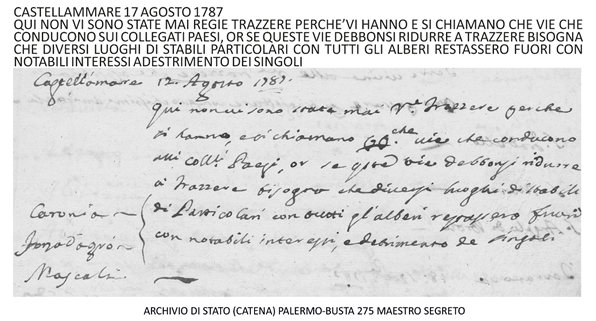 CASTELLAMMARE 17 AGOSTO 1787
QUI NON VI SONO STATE MAI REGIE TRAZZERE PERCHE'VI HANNO E SI CHIAMANO CHE VIE CHE
CONDUCONO SUI COLLEGATI PAESI, OR SE QUESTE VIE DEBBONSI RIDURRE A TRAZZERE BISOGNA
CHE DIVERSI LUOGHI DI STABILI PARTICOLARI CON TUTTI GLI ALBERI RESTASSERO FUORI CON
NOTABILI INTERESSI ADESTRIMENTO DEI SINGOLI
Castellamare 12. Agosto 1787.
Qui non vi sono state mai Re. Trazzere perche
vi hanno, e si chiamano che vie che conducono
alli Paesi, or se queste vie debbonsi ridurre
a Trazzere bisogna che diversi luoghi di stabili
di Particolari con tutti gl'alberi restassero fuori
con notabili interessi, e detrimento de singoli
Caronia
Mascali
ARCHIVIO DI STATO (CATENA) PALERMO-BUSTA 275 MAESTRO SEGRETO